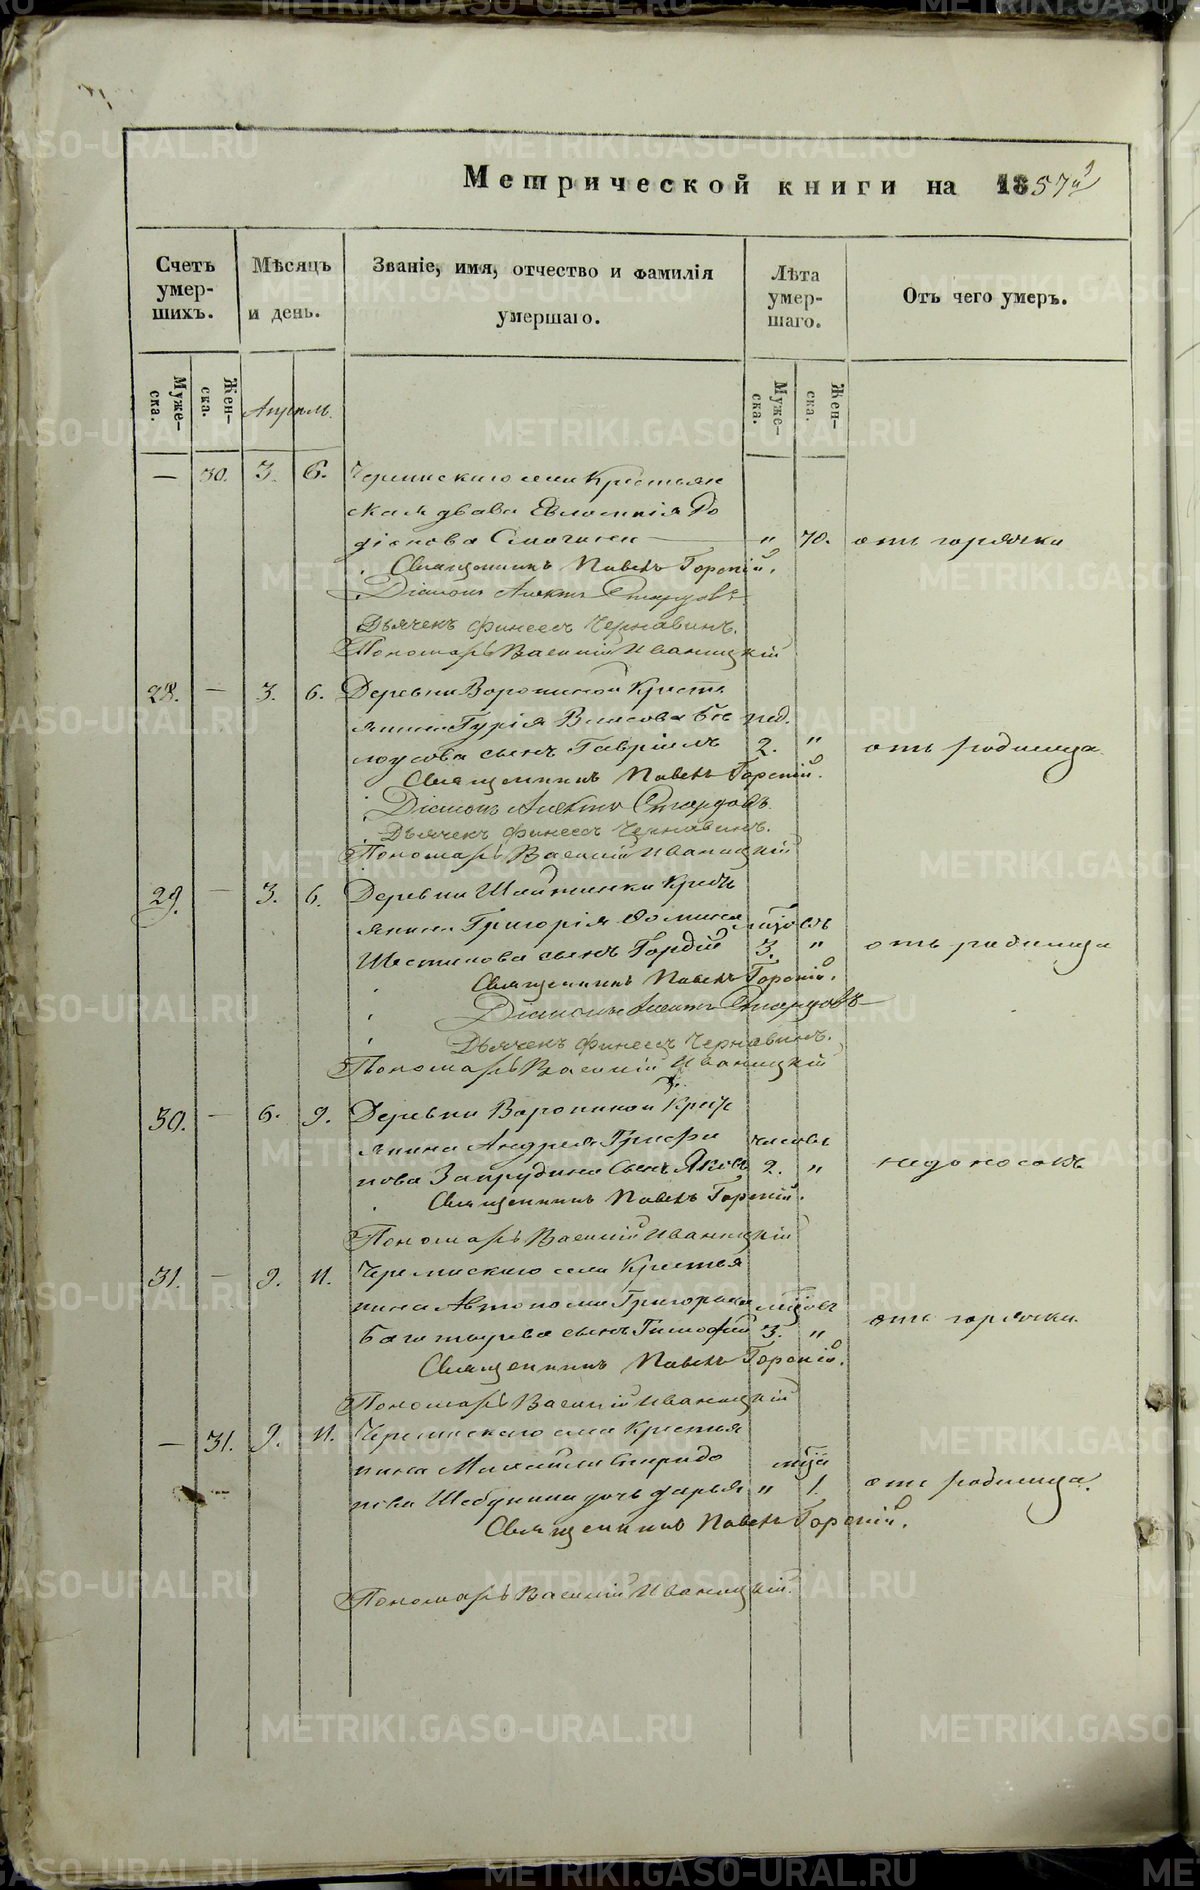 Метрической книги на 1857й
Счетъ умершихъ.
Мѣсяцъ и день.
Званіе, имя, отчество и фамилія умершаго.
Лѣта умершаго.
Отъ чего умеръ.
Мужеска.
Женска.
Апрель
Мужеска.
Женска.
— 30. 3. 6.
крестьян
ская вдова Евдокія Ро
діонова " 70. отъ горячки
Священникъ Павелъ Горскій.
Діаконъ
Дьячекъ Финеесъ Чернавинъ.
Пономарь Василій Иваницкій
28. — 3. 6. Деревни Ворониной кресть
янина Гурія Власова Бе нед.
лоусова сынъ Гавріилъ 2. " отъ родимца.
Священникъ Павелъ Горскій.
Діаконъ
Дьячекъ Финеесъ Чернавинъ.
Пономарь Василій Иваницкій
29. — 3. 6. Деревни Шайтанки кресть
янина Григорія Фомина
Шестакова сынъ Гордій 3. " отъ родимца
Священникъ Павелъ Горскій.
Діаконъ
Дьячекъ Финеесъ Чернавинъ.
Пономарь Василій Иваницкій
30. — 6. 9. Деревни Ворониной крест
янина Андрея Трифо часовъ
нова Запрудина сынъ Яковъ 2. " недоносокъ
Священникъ Павелъ Горскій.
Пономарь Василій Иваницкій
31. — 9. 11. Черемискаго села крестья
нина Автонома Григорьева
сынъ Тимофей 3. " отъ горячки.
Священникъ Павелъ Горскій.
Пономарь Василій Иваницкій
— 31. 9. 11. Черемискаго села крестья
нина Михаила Спиридо
нова дочь Дарья " 1. отъ родимца.
Священникъ Павелъ Горскій.
Пономарь Василій Иваницкій.
METRIKI.GASO-URAL.RU